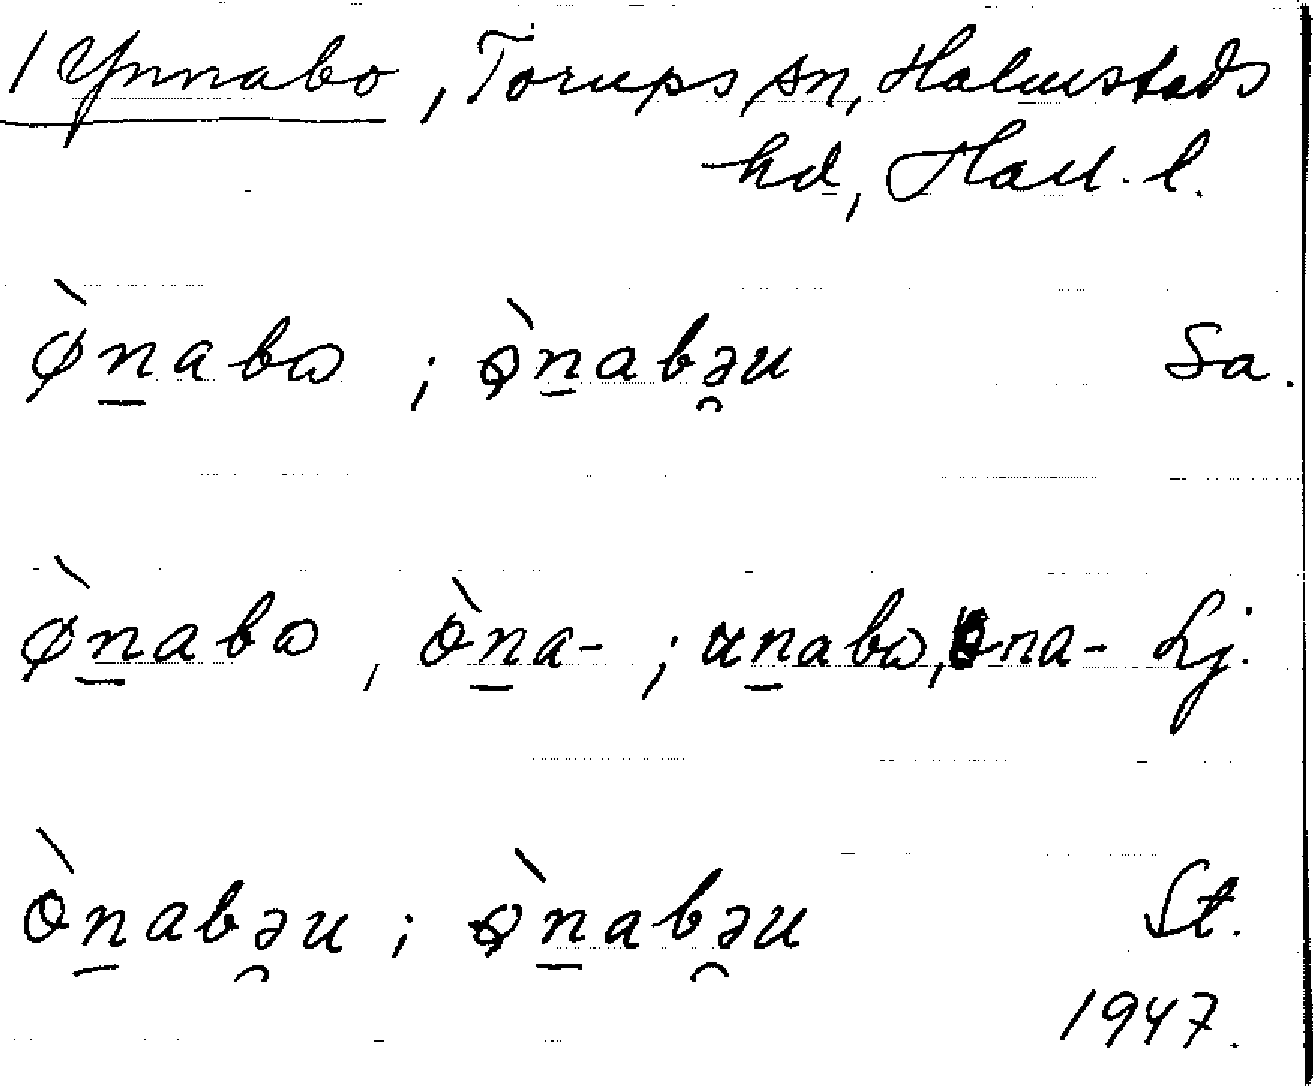 / Ynnabo, Torups sn, Halmstads
hd, Hall. l.
ø̀n̲abɷ ; ò̩n̲abə̯u Sa.
ø̀n̲abɷ, òn̲a- ; ɑn̲abɷ, na- Lj.
òn̲abə̯u ; ò̩n̲abə̯u St.
1947.